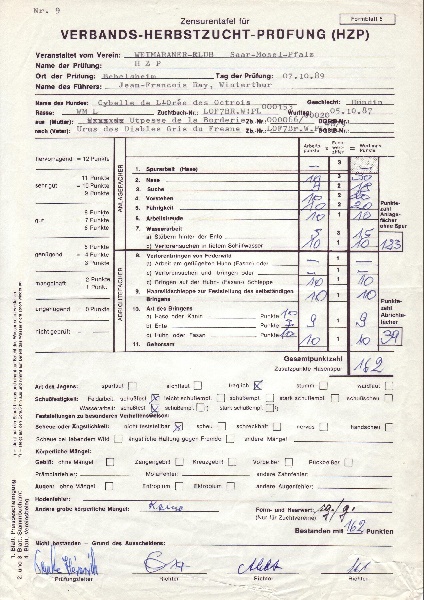 Nr. 9
Zensurentafel für
Formblatt 6
VERBANDS-HERBSTZUCHT-PRÜFUNG (HZP)
Veranstaltet vom Verein: WEIMARANER-KLUB Saar-Mosel-Pfalz
Name der Prüfung: H Z P
Ort der Prüfung: Tag der Prüfung: 07.10.89
Name des Führers: Jean-Francois Day, Winterthur
Name des Hundes: Cybelle de L4Orée des Octrois Geschlecht: Hündin
Rasse: WM L Zuchtbuch-Nr.: Wurftag: 05.10.87
aus (Mutter): Utpesse de la Borderie Zb.Nr.
nach (Vater): Urus des Diables Gris du Fresne Zb.Nr.
Arbeitspunkte = Wertungspunkte
hervorragend = 12 Punkte
11 Punkte
sehr gut = 10 Punkte
9 Punkte
8 Punkte
gut 7 Punkte
6 Punkte
5 Punkte
genügend = 4 Punkte
3 Punkte
mangelhaft 2 Punkte
1 Punkt
ungenügend 0 Punkte
nicht geprüft = —
ANLAGEFÄCHER
1. Spurarbeit (Hase) — 3
2. Nase 10 3 30
3. Suche 9 2 18
4. Vorstehen 10 2 20
5. Führigkeit 10 2 20
6. Arbeitsfreude 10 1 10
7. Wasserarbeit
a) Stöbern hinter der Ente 5 3 15
b) Verlorensuchen in tiefem Schilfwasser 10 1 10
Punktzahl Anlagefächer ohne Spur
123
ABRICHTEFÄCHER
8. Verlorenbringen von Federwild
a) Arbeit am geflügelten Huhn (Fasan) oder — 1 —
b) Verlorensuchen und -bringen oder — 1 —
c) Bringen auf der Huhn- (Fasan-) Schleppe 10 1 10
9. Haarwildschleppe zur Feststellung des selbständigen Bringens 10 1 10
10. Art des Bringens
a) Hase oder Kanin Punkte 10
b) Ente Punkte 7
c) Huhn oder Fasan Punkte 10
9 1 9
11. Gehorsam 10 1 10
Punktzahl Abrichtefächer
39
Gesamtpunktzahl 162
Zusatzpunkte Hasenspur
Art des Jagens: spurlaut sichtlaut fraglich X stumm waidlaut
Schußfestigkeit: Feldarbeit: schußfest X leicht schußempf. schußempf. stark schußempf. schußscheu
Wasserarbeit: schußfest X schußempf. stark schußempf.
Feststellungen zu besonderen Verhaltensweisen:
Scheue oder Ängstlichkeit: nicht feststellbar X scheu schreckhaft nervös handscheu
Scheue bei lebendem Wild ängstliche Haltung gegen Fremde andere Mängel
Körperliche Mängel:
Gebiß: ohne Mängel Zangengebiß Kreuzgebiß Vorbeißer Rückbeißer
Prämolarfehler: Molarfehler: andere Zahnfehler:
Augen: ohne Mängel Entropium Ektropium andere Augenfehler:
Hodenfehler:
Andere grobe körperliche Mängel: Keine
Form- und Haarwert:
(Nur für Zuchtvereine)
Bestanden mit 162 Punkten
Nicht bestanden – Grund des Ausscheidens:
Prüfungsleiter Richter Richter Richter